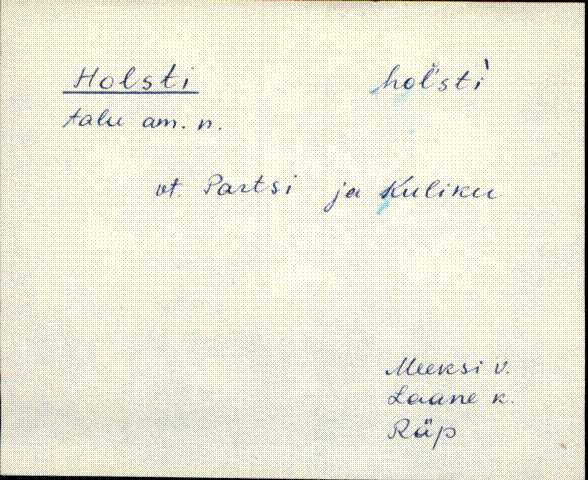 Holsti hol'sti`
talu am. n.
vt. Partsi ja Kuliku
Meeksi v.
Laane k.
Räp